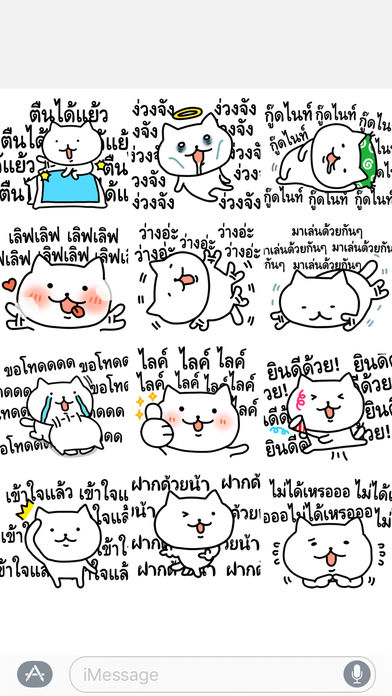 ตืนได้แย้ว
ตืนได้
ได้แย้ว
ตืนได้แย้ว
ง่วงจัง ง่วงจัง
ง่วงจัง ง่วงจัง
ง่วงจัง ง่วงจัง
ง่วงจัง ง่วงจัง
กู๊ดไนท์ กู๊ดไนท์
กู๊ดไนท์ กู๊ดไนท์ กู๊ดไนท์
เลิฟเลิฟ เลิฟเลิฟ
เลิฟเลิฟ เลิฟเลิฟ
ว่างอ่ะ ว่างอ่ะ
ว่างอ่ะ ว่างอ่ะ
มาเล่นด้วยกันๆ
มาเล่นด้วยกันๆ มาเล่นด้วยกันๆ
มาเล่นด้วยกันๆ
ขอโทดดดด ขอโทดดด
ขอโทดดด
ไลค์ ไลค์ ไลค์
ไลค์ ไลค์ ไลค์
ยินดีด้วย!
ด้วย! ยินดี
เข้าใจแล้ว เข้าใจแล้ว
เข้าใจแล้ว
ฝากด้วยน้า ฝากด้วย
ฝากด้วยน้า ฝากด้วย
ไม่ได้เหรอออ ไม่ได้
ไม่ได้เหรอออ
iMessage